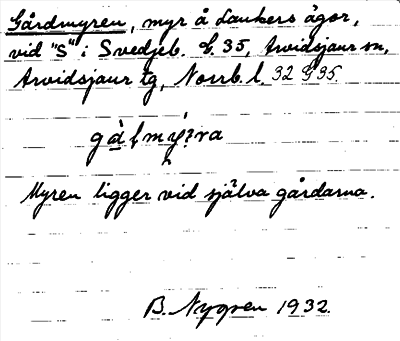 Gårdmyren, myr å Lankers ägor,
vid "S" i Svedjeb. E. 35, Arvidsjaur sn,
Arvidsjaur tg, Norrb. l. 32 G 35.
Myren ligger vid själva gårdarna.
B. Nygren 1932.